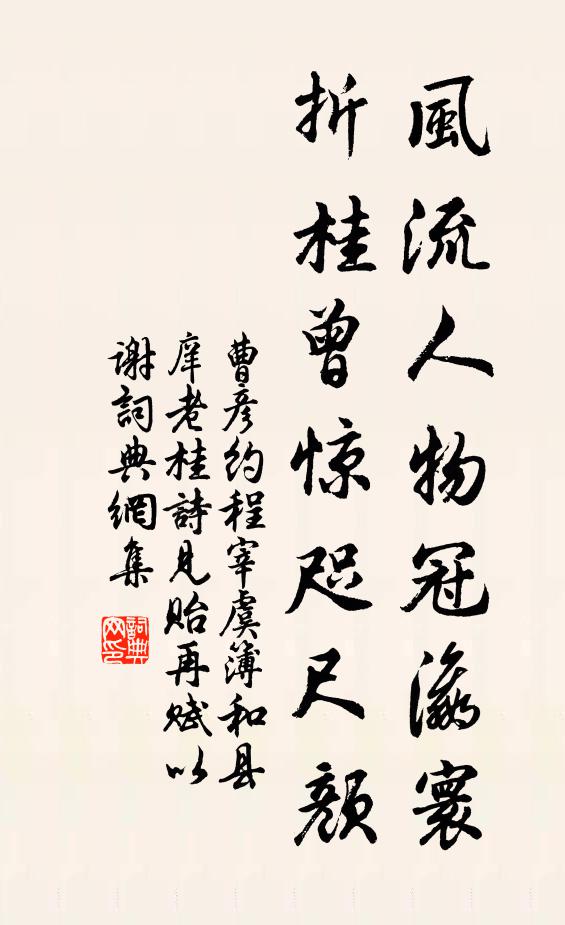 風流人物冠瀛寰
折桂曾惊咫尺顏
曹彥約程宰虞簿和县
庠老桂詩見貽再賦以
謝詞典網集
詞典
网印